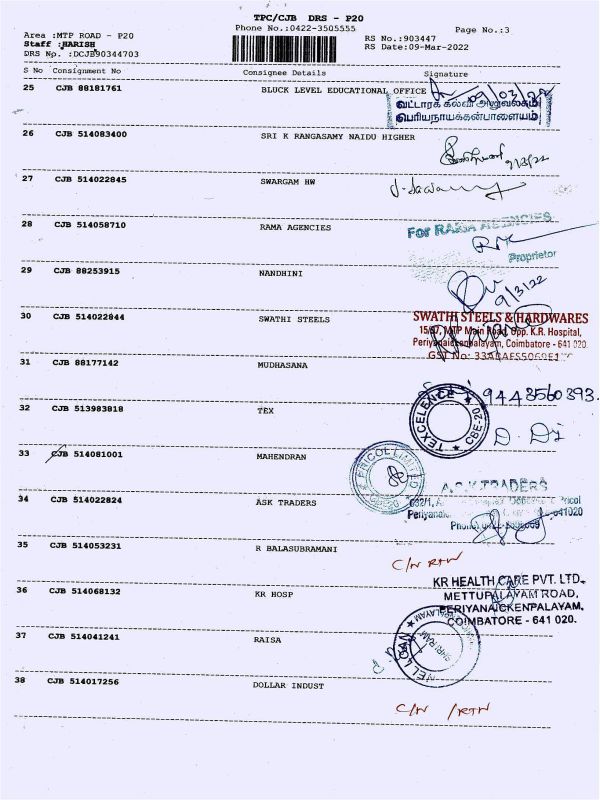 TPC/CJB DRS - P20
Phone No.:0422-3505555
Page No.:3
Area :MTP ROAD - P20
Staff :HARISH
DRS No. :DCJB90344703
RS No.:903447
RS Date:09-Mar-2022
S No Consignment No Consignee Details Signature
25 CJB 88181761 BLUCK LEVEL EDUCATIONAL OFFICE
09/03/22
வட்டாரக் கல்வி அலுவலகம்
பெரியநாயக்கன்பாளையம்
26 CJB 514083400 SRI K RANGASAMY NAIDU HIGHER
9/3/22
27 CJB 514022845 SWARGAM HW
28 CJB 514058710 RAMA AGENCIES
For RAMA AGENCIES
Proprietor
29 CJB 88253915 NANDHINI
9/3/22
30 CJB 514022844 SWATHI STEELS
SWATHI STEELS & HARDWARES
15/67, MTP Main Road, Opp. K.R. Hospital,
Periyanaickenpalayam, Coimbatore - 641 020
GST No:
31 CJB 88177142 MUDHASANA
9443560393
32 CJB 513983818 TEX
TEXCELENCE
CBE-20
33 CJB 514081001 MAHENDRAN
PRICOL LIMITED
34 CJB 514022824 ASK TRADERS
A.S.K TRADERS
Pricol
641020
35 CJB 514053231 R BALASUBRAMANI
C/N RTN
36 CJB 514068132 KR HOSP
KR HEALTH CARE PVT. LTD.,
METTUPALAYAM ROAD,
PERIYANAICKENPALAYAM,
COIMBATORE - 641 020.
37 CJB 514041241 RAISA
SHRI RAM
38 CJB 514017256 DOLLAR INDUST
C/N /RTN